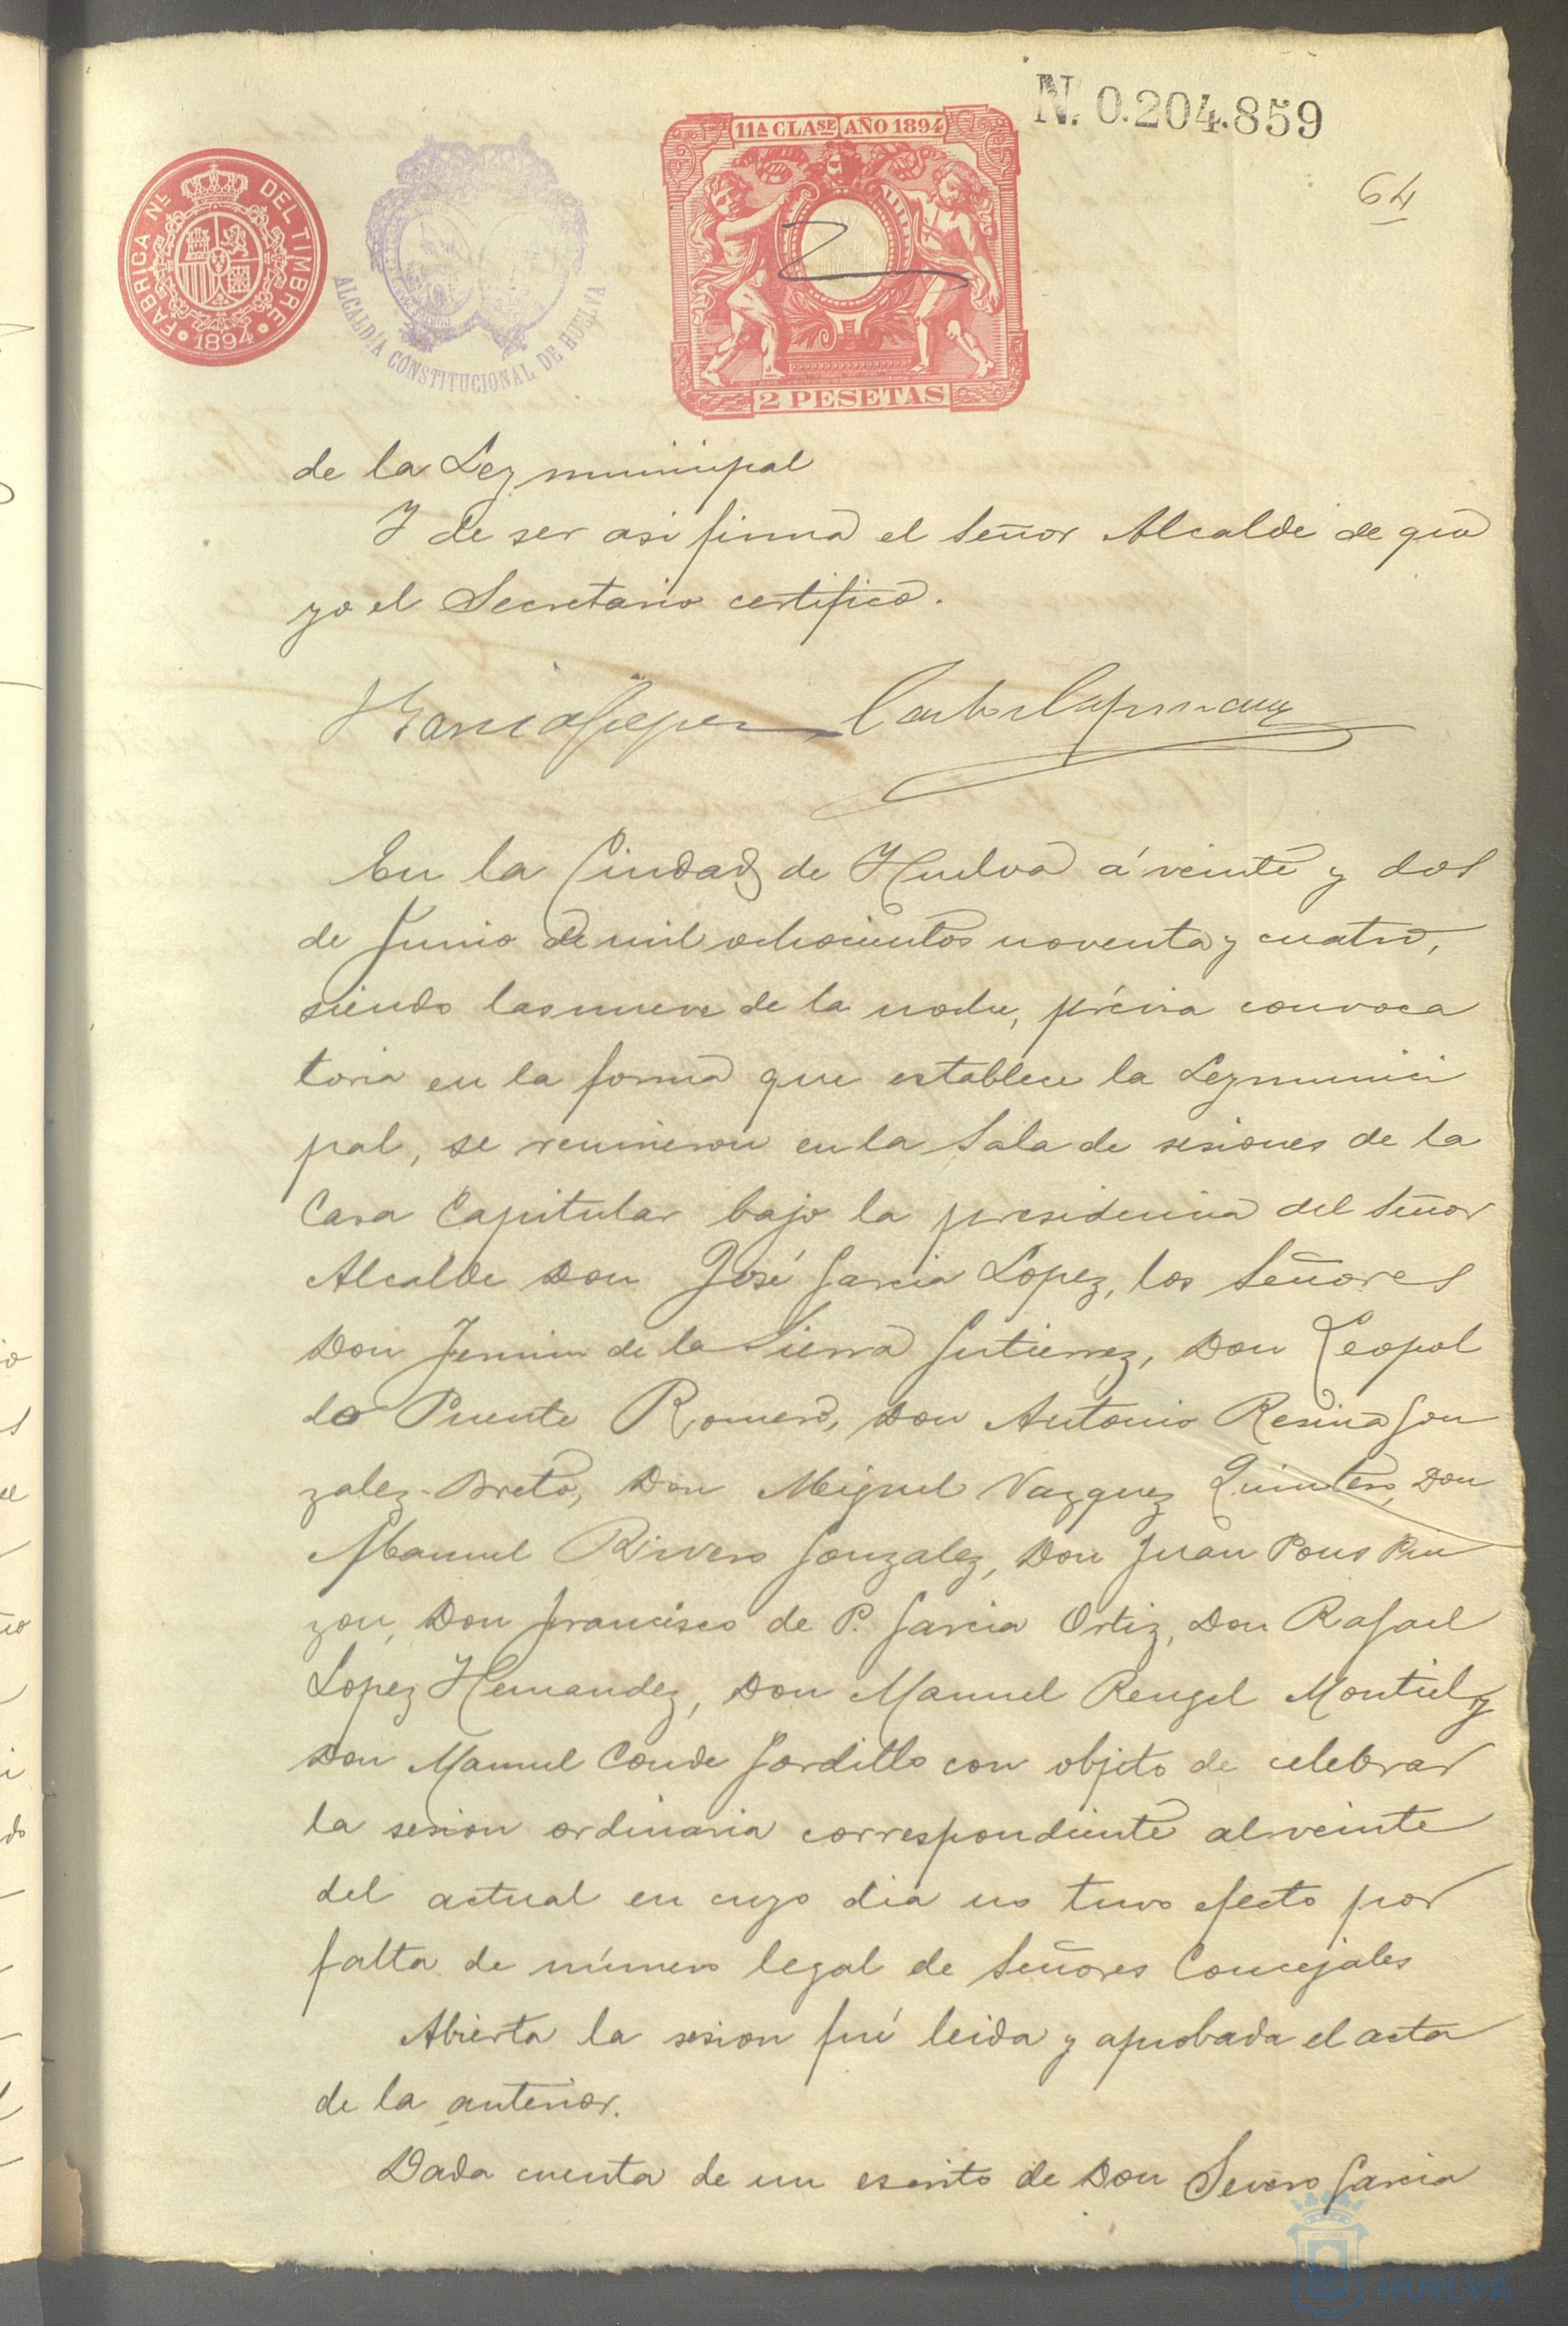 N. 0.204.859
11ª CLASE AÑO 1894
64
FABRICA NL. DEL TIMBRE
1894
ALCALDÍA CONSTITUCIONAL DE HUELVA
2 PESETAS
de la Ley municipal
Y de ser asi firma el Señor Alcalde de que
yo el Secretario certifico.
En la Ciudad de Huelva á veinte y dos
de Junio de mil ochocientos noventa y cuatro,
siendo las nueve de la noche, prévia convoca
toria en la forma que establece la Ley munici
pal, se reunieron en la Sala de sesiones de la
Casa Capitular bajo la presidencia del Señor
Alcalde Don José Garcia Lopez, los Señores
Don Fermin de la Sierra Gutierrez, Don Leopol
do Puente Romero, Don Antonio Resina Gon
zalez Breto, Don Miguel Vazquez Quintero, Don
Manuel Rivero Gonzalez, Don Juan Pons Pin
zon, Don Francisco de P. Garcia Ortiz, Don Rafael
Lopez Hernandez, Don Manuel Rengel Montiel y
Don Manuel Conde Gordillo con objeto de celebrar
la sesion ordinaria correspondiente al veinte
del actual en cuyo dia no tuvo efecto por
falta de número legal de Señores Concejales
Abierta la sesion fué leida y aprobada el acta
de la anterior.
Dada cuenta de un escrito de Don Severo Garcia
HUELVA